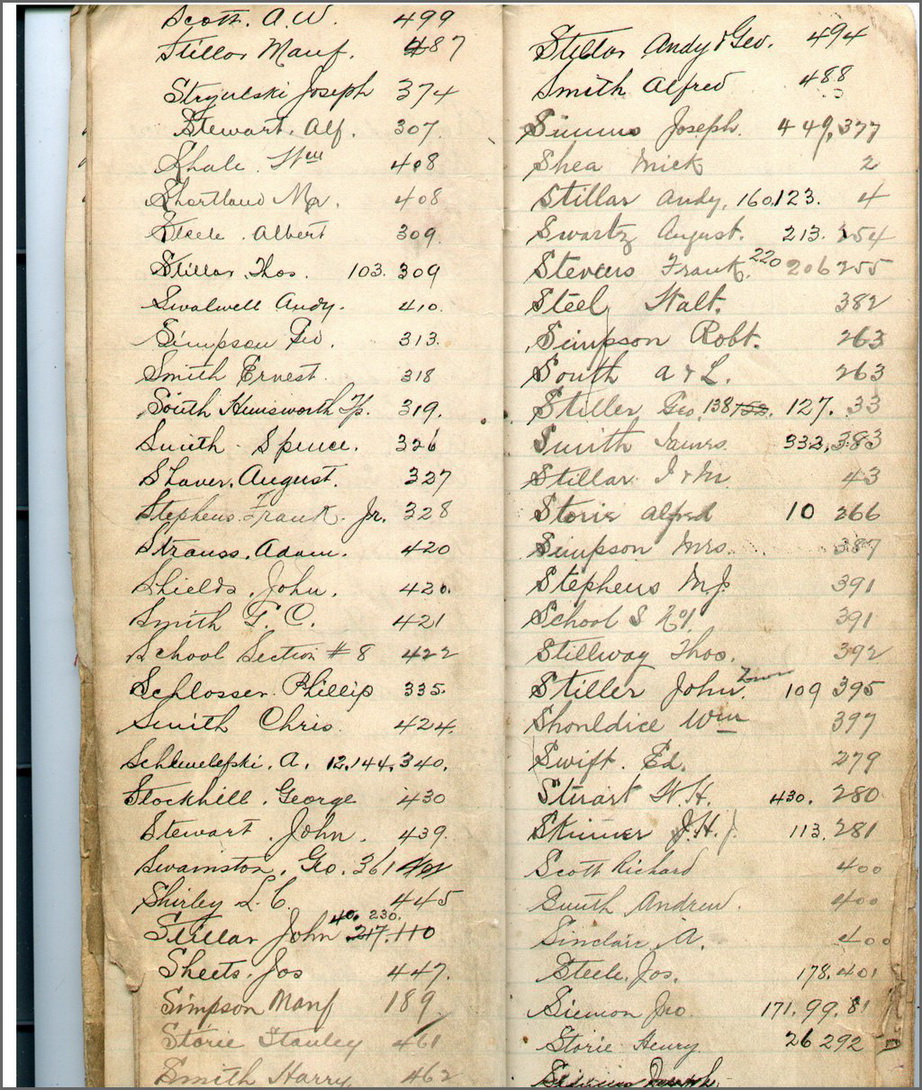 Scott. A.W. 499
Stillar Manf. 487
Stryulski Joseph 374
Stewart. Alf. 307.
Shale. Wm 408
Shortland Mr. 408
Steele. Albert 309.
Stillar Thos. 103. 309
Swalwell Andy. 410.
Simpson Geo. 313.
Smith Ernest. 318
South Himsworth Tp. 319.
Smith Spence. 326
Shaver. August. 327
Stephens. Frank. Jr. 328
Strauss. Adam. 420
Shields. John. 420.
Smith T. C. 421
School Section #8 422
Schlosser. Phillip 335.
Smith Chris. 424.
A. 12,144, 340.
Stockhill. George 430
Stewart. John. 439.
Swainston. Geo. 361
Shirley L. C. 445
40. 230.
Stillar John 217. 110
Sheets. Jos 447.
Simpson Manf 189.
Storie Stanley 461
Smith Harry 462
Stillar Andy & Geo. 494
Smith Alfred 488
Simms Joseph. 449, 377
Shea Mick 2
Stillar Andy. 160. 123. 4
Swartz August. 213. 254
Stevens Frank. 220 206 255
Steel Walt. 382
Simpson Robt. 263
South A & L. 263
Stiller Geo. 138 152. 127. 33
Smith James 332, 383
Stillar. I & M 43
Storie Alfred 10 266
Simpson Mrs. 387
Stephens M J. 391
School S No 1 391
Stillway Thos. 392
Stiller John. 109 395
Shouldice Wm 397
Swift. Ed. 279
Stuart W. H. 430. 280
Skinner J. H. 113. 281
Scott Richard 400
Smith Andrew. 400
Sinclair. A. 400
Steele. Jos. 178. 401
Siemon Jno 171. 99. 81
Storie Henry 26 292
Simms Joseph